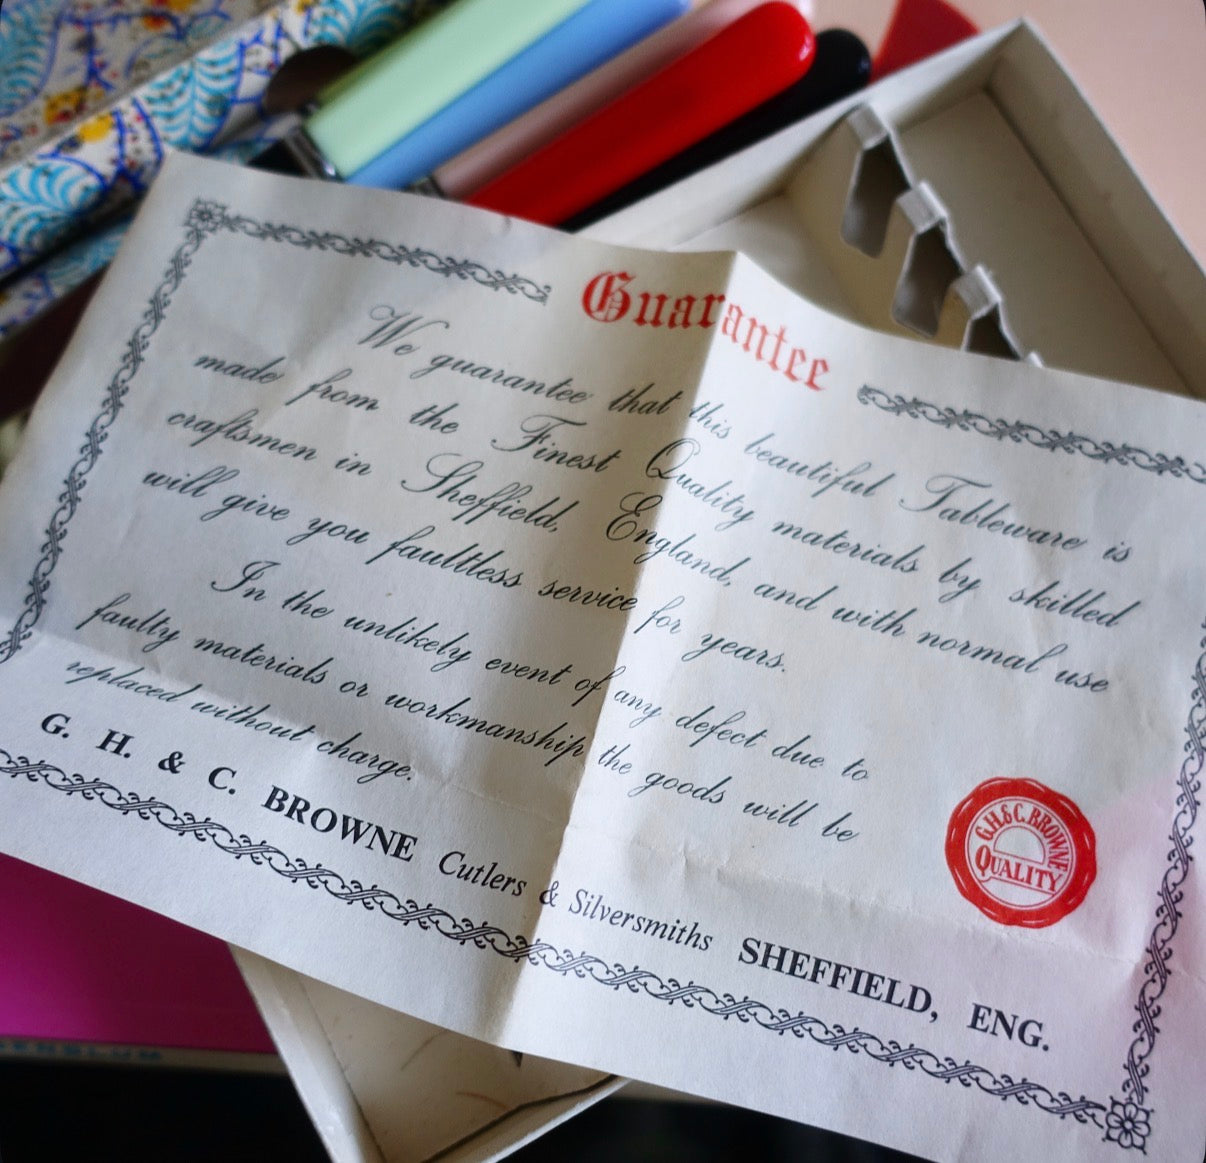 Guarantee
We guarantee that this beautiful Tableware is
made from the Finest Quality materials by skilled
craftsmen in Sheffield, England, and with normal use
will give you faultless service for years.
In the unlikely event of any defect due to
faulty materials or workmanship the goods will be
replaced without charge.
G. H. & C. BROWNE Cutlers & Silversmiths SHEFFIELD, ENG.
G.H.& C. BROWNE
QUALITY